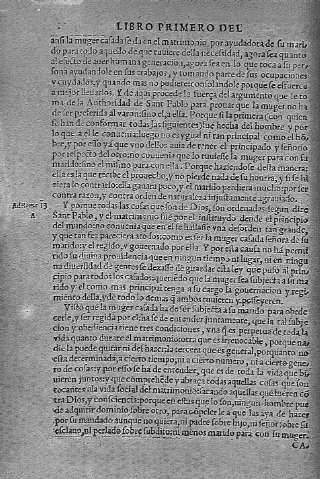 LIBRO PRIMERO DEL
ansi la muger casada se da en el matrimonio por ayudadora de su mari
do para todo aquello de que tuuiere necessidad, agora sea quanto
al efecto de auer humana generacion, agora sea en lo que toca a su per
sona ayudandole en sus trabajos, y tomando parte de sus ocupaciones
y cuydados, y quando mas no pudiere consolandole porque se esfuerce
a mejor lleuarlos. Y de aqui procede la fuerça del argumento que se to
ma de la Authoridad de Sant Pablo para prouar que la muger no ha
de ser preferida al varon sino el a ella. Porque si la primera (con quien
se han de conformar todas las siguientes) fue hecha del hombre y por
lo que a el le conuenia luego no es ygual ni tan principal como el hom
bre, y por ello ya que vno dellos auia de tener el principado y señorio
por respecto del
marido sino el mismo para con ella. Porque haziendose desta manera
ella es la que recibe el prouecho, y no pierde nada de su honrra, y si se hi
ziera lo contrario ella ganara poco, y el marido perdiera mucho por ser
contra razon, y contra orden de naturaleza injustamente agrauiado.
Y porque todas cosas que son de Dios, son ordenadas segun dize
Sant Pablo, y el matrimonio fue por el instituydo desde el principio
del mundo no conuenia que en el se hallasse vna desorden tan grande,
y que tan fea pareciera a todos como es ser la muger casada señora de su
marido: y el regido, y gouernado por ella. Y por esta causa no ha permi
tido su diuina prouidencia que en ningun tiempo ni lugar, ni en ningu
na diuersidad de gentes se dexasse de guardar esta ley que puso al prin
cipio para todos los casados: queriendo que la muger sea subjecta a su ma
rido y el como mas principal tenga a su cargo la gouernacion y regi
miento della, y de todo lo demas que ambos tuuieren y posseyeren.
Visto que la muger casada ha de ser subjecta a su marido para obede
cerle, y ser regida por el: ha se de entender juntamente, que la tal subje
cion y obediencia tiene tres condiciones, vna que es perpetua de toda la
vida quanto durare el matrimonio: otra que es irreuocable, porque na
die la puede quitar ni deshazer: la tercera que es general, porque no
esta determinada a cierto tiempo, ni a cierto numero, ni a cierto gene
ro de cosas: y por esso se ha de entender, que es de toda la vida que bi
uieren juntos: y que comprehende y abraça todas aquellas cosas que son
tocantes a la vida social del matrimonio: sacando aquellas que fueren con
tra Dios, y conciencia: porque en estas que lo son, ningun hombre pue
de adquirir dominio sobre otro, para compelerle a que las aya de hazer
por su mandado aunque no quiera, ni padre sobre hijo, ni señor sobre su
esclauo, ni perlado sobre subdito: ni menos marido para con su muger.
CA-